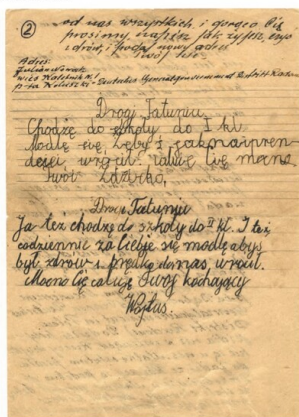 ②
od nas wszystkich, i gorąco Cię
prosimy, napisz jak żyjesz, czyś
zdrów, i podaj nowy adres
Twój
Adres:
Julian Nowak
wieś Kaletnik N. 1
p-ta Koluszki - Deutsches Generalgouvernement Distrikt
Drogi Tatuniu
Chodzę do szkoły do I kl.
Modlę się, żebyś jaknajpren-
dzej wrócił. Całuję Cię mocno
Twój Zdzisko.
Drogi Tatuniu
Ja też chodzę do szkoły do II kl. I też
codziennie za Ciebie się modlę abyś
był zdrów i prędko do nas wrócił.
Mocno Cię całuję Twój kochający
Wojtuś.